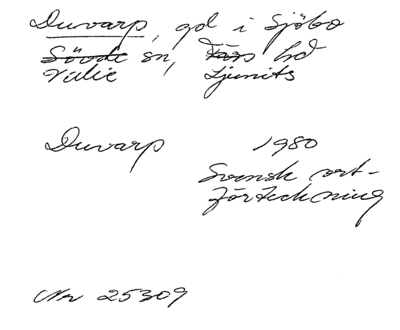 Duvarp, gd i Sjöbo
Sövde sn, Färs hd
Ljunits
Duvarp 1980
Svensk ort-
förteckning
Nr 25309